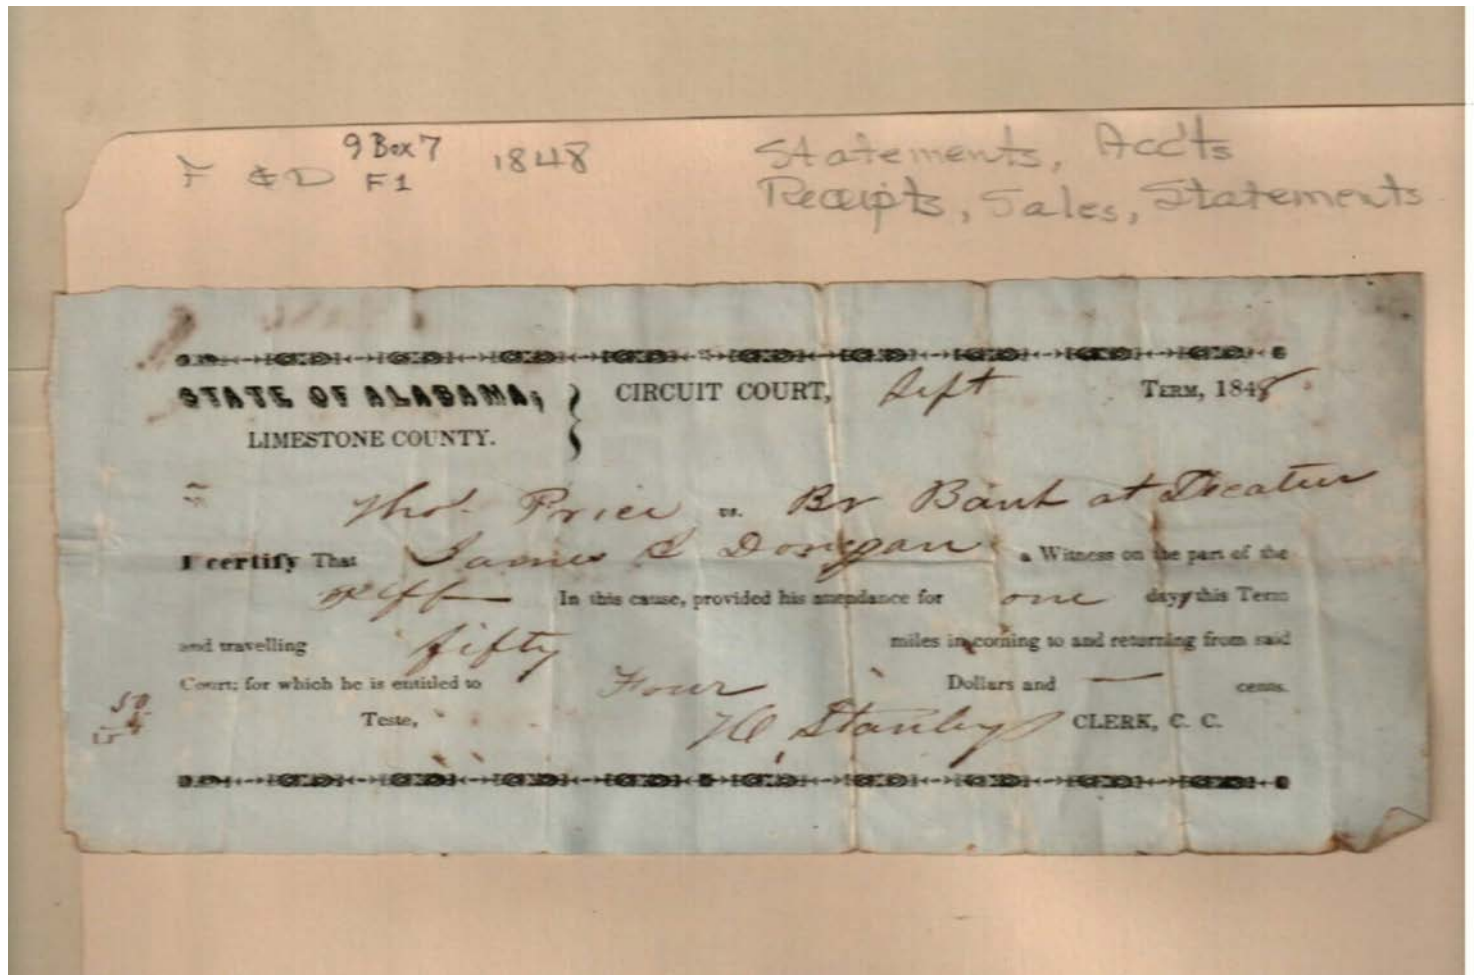 F & D 9 Box 7 1848
F1
Statements, Acc'ts
Receipts, Sales, Statements
STATE OF ALABAMA, } CIRCUIT COURT, Sept TERM, 1848
LIMESTONE COUNTY.
Thos. Price vs. Br Bank at Decatur
I certify That James S Donegan a Witness on the part of the
Plff In this cause, provided his attendance for one day this Term
and travelling fifty miles in coming to and returning from said
Court; for which he is entitled to Four Dollars and — cents.
50
Teste, Stanley CLERK, C. C.